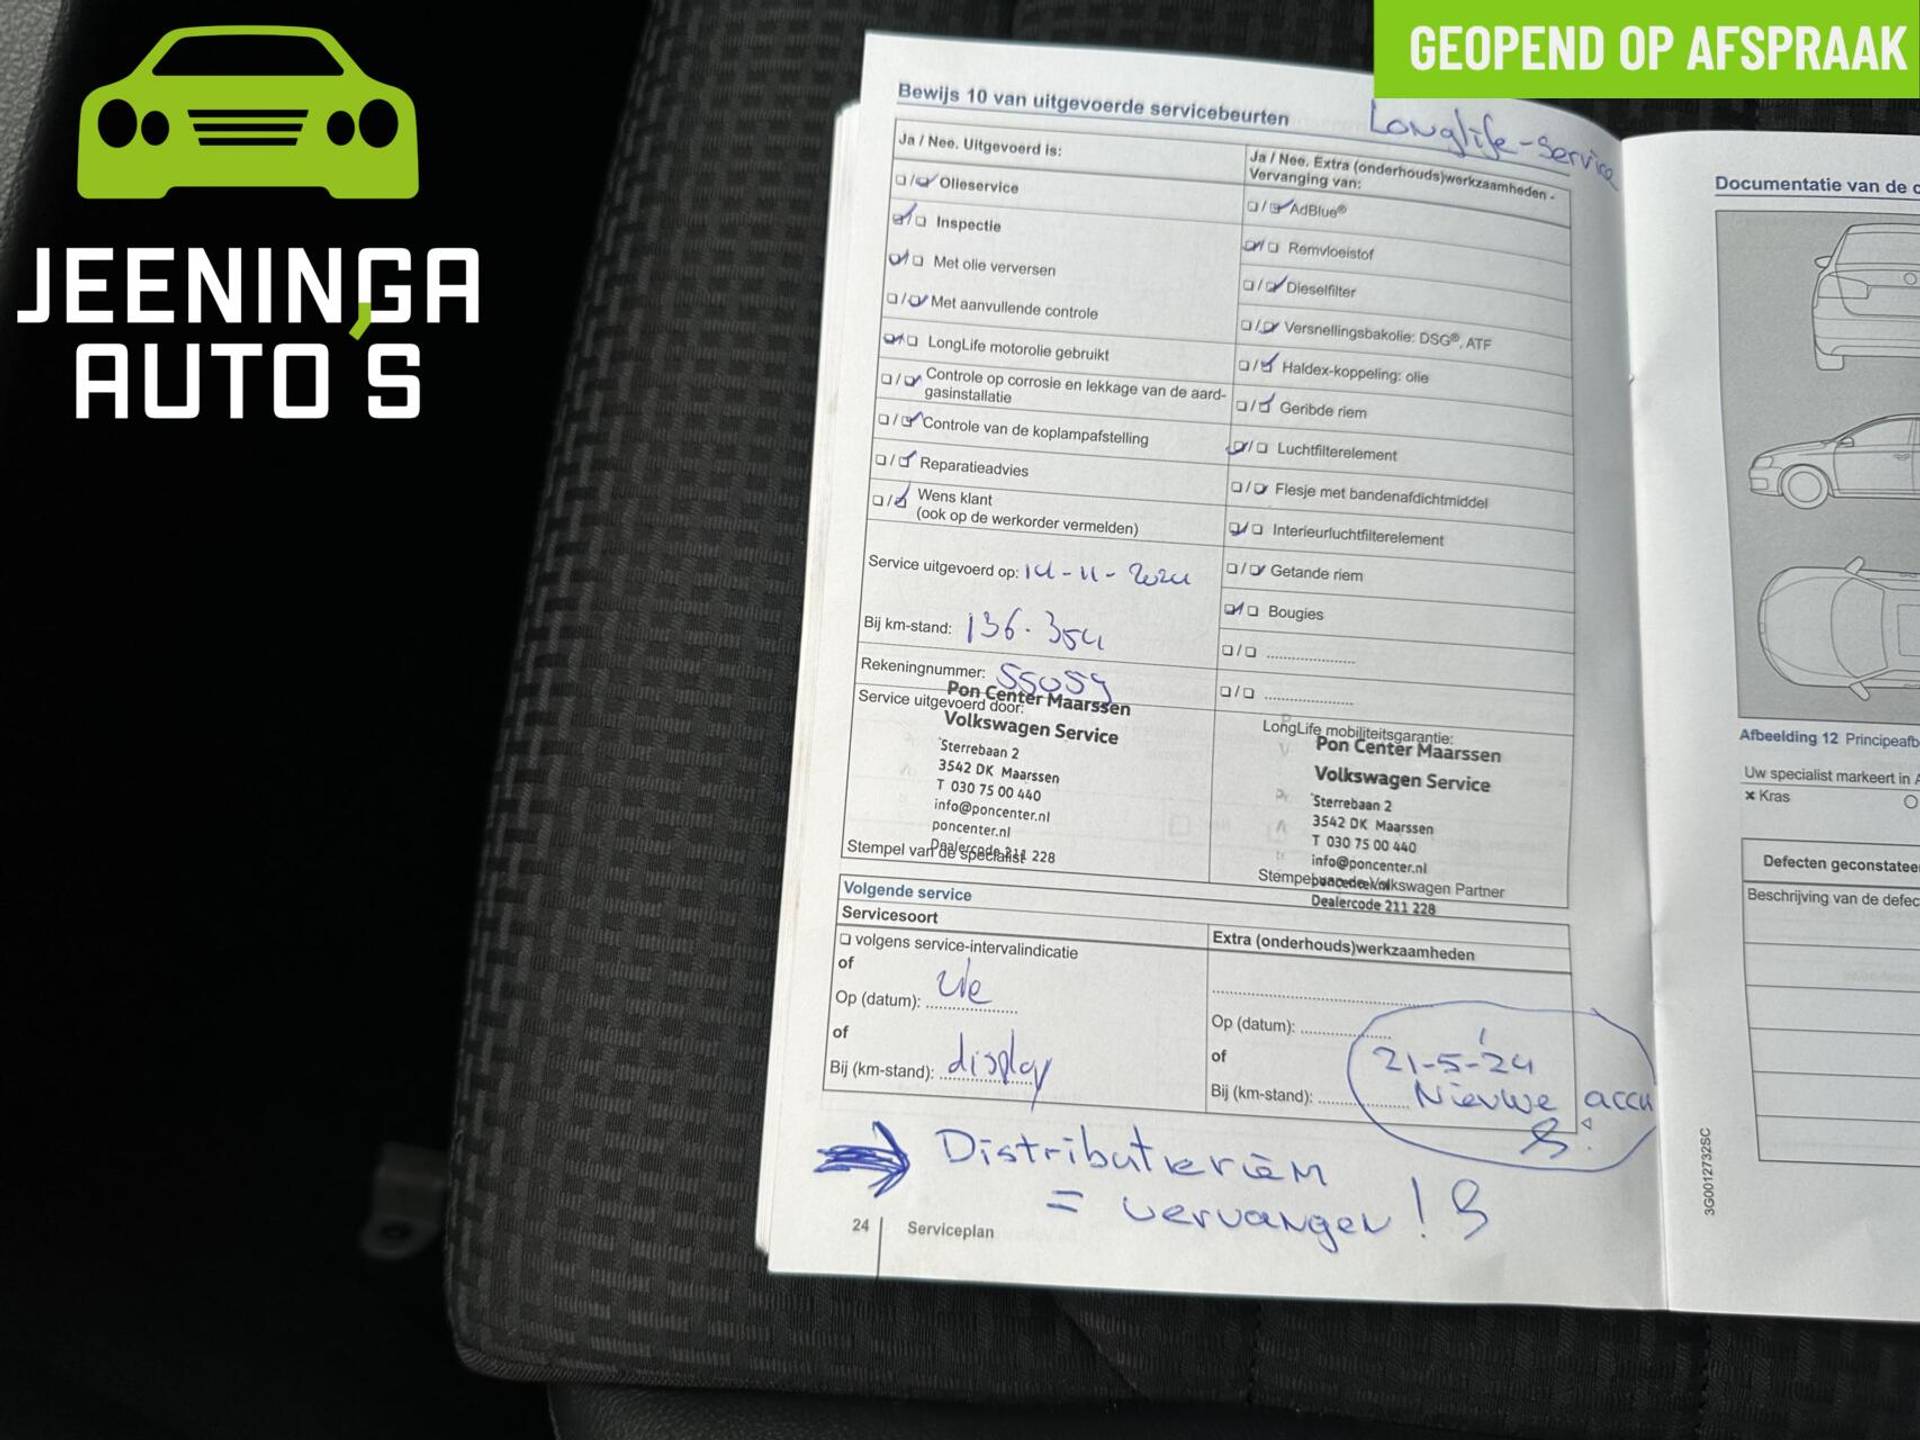 JEENINGA
AUTO'S
GEOPEND OP AFSPRAAK
Bewijs 10 van uitgevoerde servicebeurten
Longlife-Service
Ja / Nee. Uitgevoerd is:
Olieservice
Inspectie
Met olie verversen
Met aanvullende controle
LongLife motorolie gebruikt
Controle op corrosie en lekkage van de aard-
gasinstallatie
Controle van de koplampafstelling
Reparatieadvies
Wens klant
(ook op de werkorder vermelden)
Service uitgevoerd op: 14-11-2024
Bij km-stand: 136.354
Rekeningnummer: 55059
Service uitgevoerd door:
Pon Center Maarssen
Volkswagen Service
Sterrebaan 2
3542 DK Maarssen
T 030 75 00 440
info@poncenter.nl
poncenter.nl
Dealercode 211 228
Stempel van de specialist
Ja / Nee. Extra (onderhouds)werkzaamheden -
Vervanging van:
AdBlue®
Remvloeistof
Dieselfilter
Versnellingsbakolie: DSG®, ATF
Haldex-koppeling: olie
Geribde riem
Luchtfilterelement
Flesje met bandenafdichtmiddel
Interieurluchtfilterelement
Getande riem
Bougies
LongLife mobiliteitsgarantie:
Pon Center Maarssen
Volkswagen Service
Sterrebaan 2
3542 DK Maarssen
T 030 75 00 440
info@poncenter.nl
poncenter.nl
Stempel van de Volkswagen Partner
Dealercode 211 228
Volgende service
Servicesoort
volgens service-intervalindicatie
of
Op (datum): zie
of
Bij (km-stand): display
Extra (onderhouds)werkzaamheden
Op (datum):
of
Bij (km-stand):
21-5-'24
Nieuwe accu
Distributieriem
= vervangen!
24
Serviceplan
Documentatie van de
Afbeelding 12 Principeafb
Uw specialist markeert in
Kras
Defecten geconstatee
Beschrijving van de defec
3G0012732SC